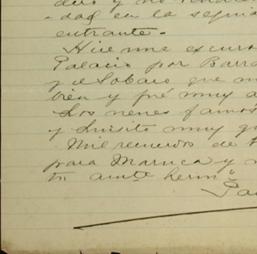 dad en la segu
entrante.-
Hice una excurs
Palacio por Barra
y el Sobaco que
bien y fué muy a
Los nenes famos
y Luisito muy g
Mil recuerdos de
para Maruca y
tu amte. hermo.